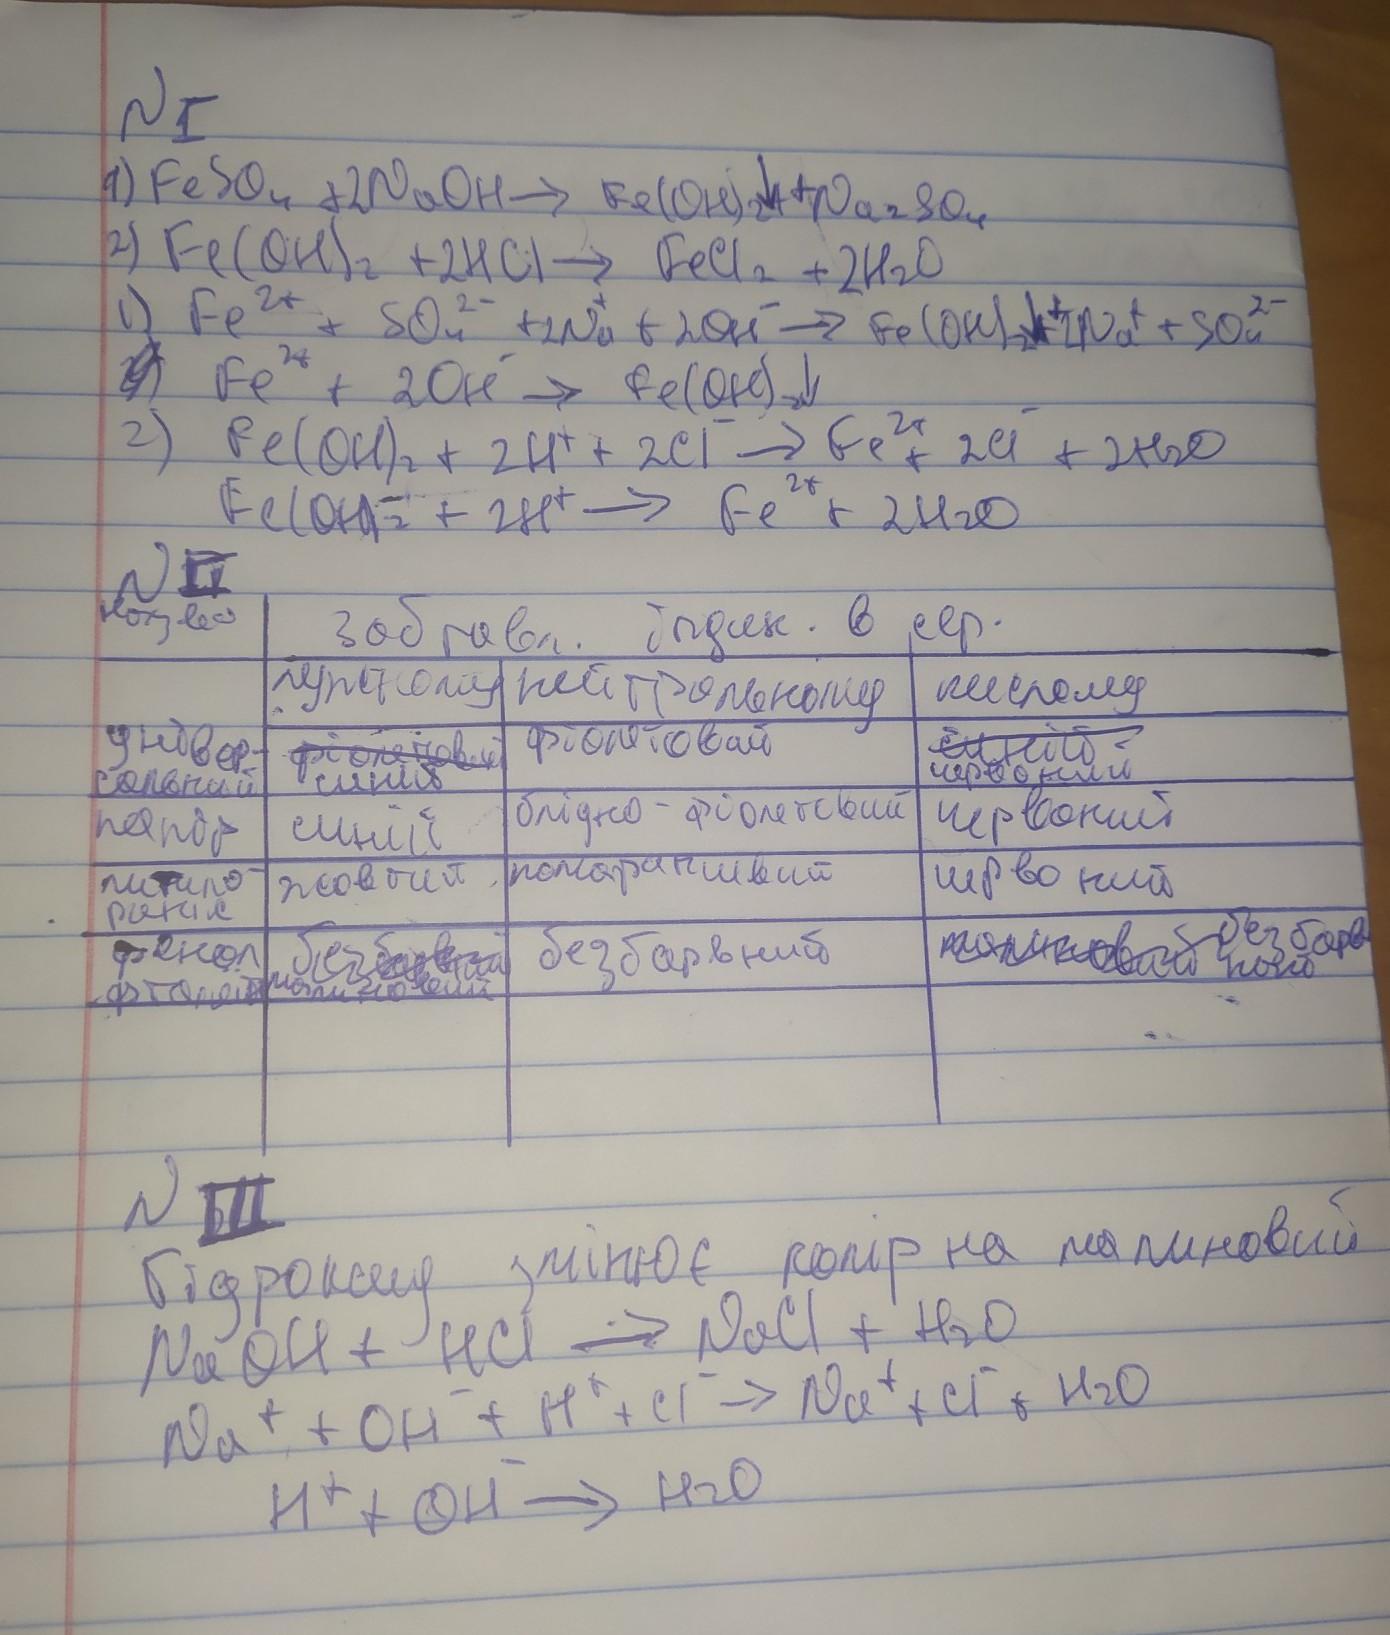 N I
1) FeSO₄ + 2NaOH → Fe(OH)₂↓ + Na₂SO₄
2) Fe(OH)₂ + 2HCl → FeCl₂ + 2H₂O
1) Fe²⁺ + SO₄²⁻ + 2Na⁺ + 2OH⁻ → Fe(OH)₂↓ + 2Na⁺ + SO₄²⁻
Fe²⁺ + 2OH⁻ → Fe(OH)₂↓
2) Fe(OH)₂ + 2H⁺ + 2Cl⁻ → Fe²⁺ + 2Cl⁻ + 2H₂O
Fe(OH)₂ + 2H⁺ → Fe²⁺ + 2H₂O
N II
Забравл. індик. в сер.
лужному нейтральному кислому
універсальний синій фіолетовий червоний
папір синій блідно-фіолетовий червоний
жовтий помаранчивий червоний
фенолфталеїн малиновий безбарвний безбарвний
N III
Гідроксид змінює колір на малиновий
NaOH + HCl → NaCl + H₂O
Na⁺ + OH⁻ + H⁺ + Cl⁻ → Na⁺ + Cl⁻ + H₂O
H⁺ + OH⁻ → H₂O